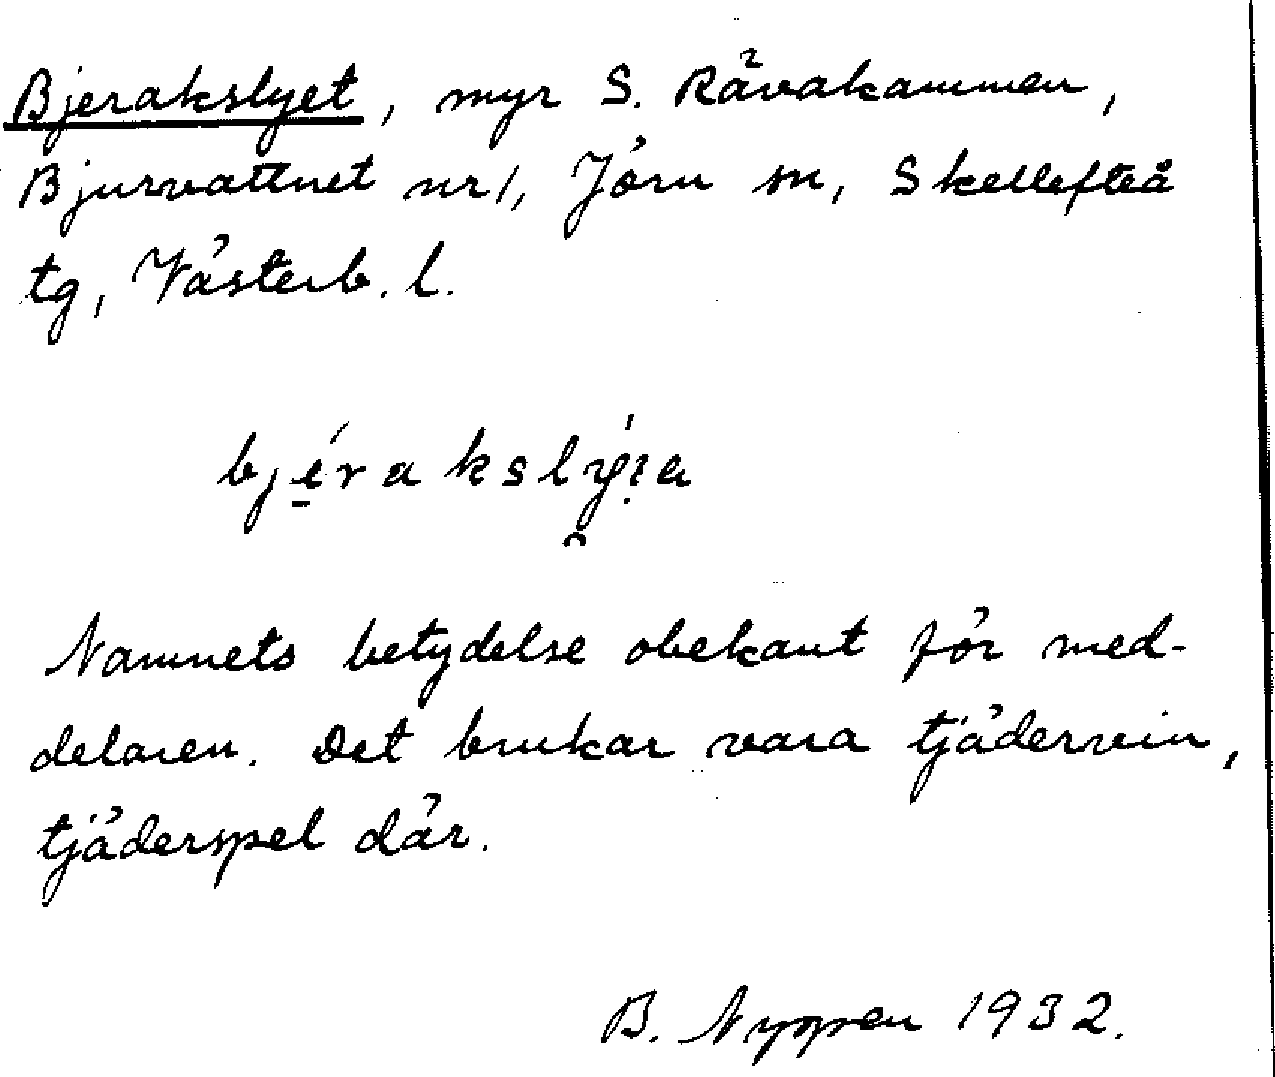 Bjerakslyet, myr S. Rävakammen,
Bjurvattnet nr 1, Jörn sn, Skellefteå
tg, Västerb. l.
Namnets betydelse obekant för med-
delaren. Det brukar vara tjädervin,
tjäderspel där.
B. Nyppen 1932.